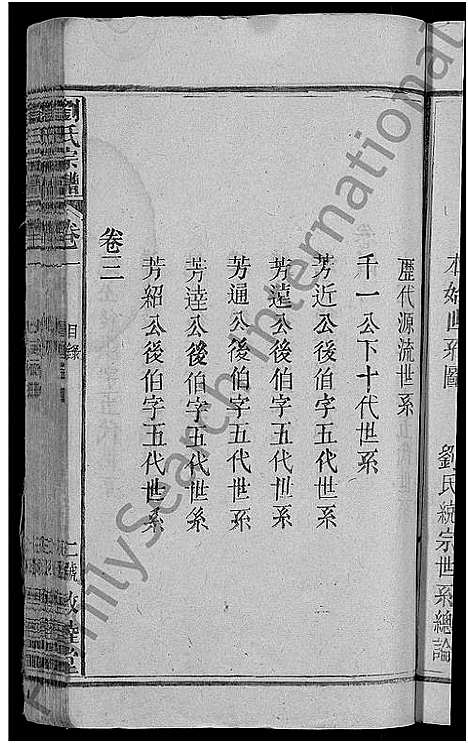 本始世系圖　劉氏統宗世系總論
歷代源流世系
千一公下十代世系
芳近公後伯字五代世系
芳遠公後伯字五代世系
芳通公後伯字五代世系
芳達公後伯字五代世系
芳紹公後伯字五代世系
卷三
劉氏宗譜 卷一 目錄 二號 敦睦堂
FamilySearch International